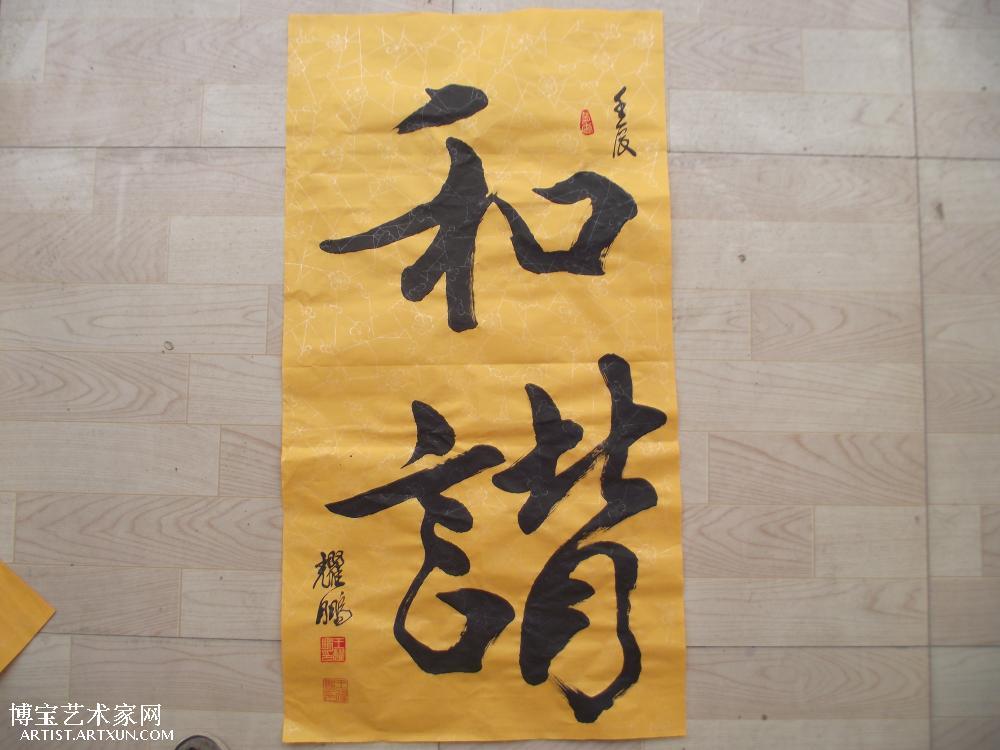 壬辰
和
諧
耀鵬
博宝艺术家网
ARTIST.ARTXUN.COM